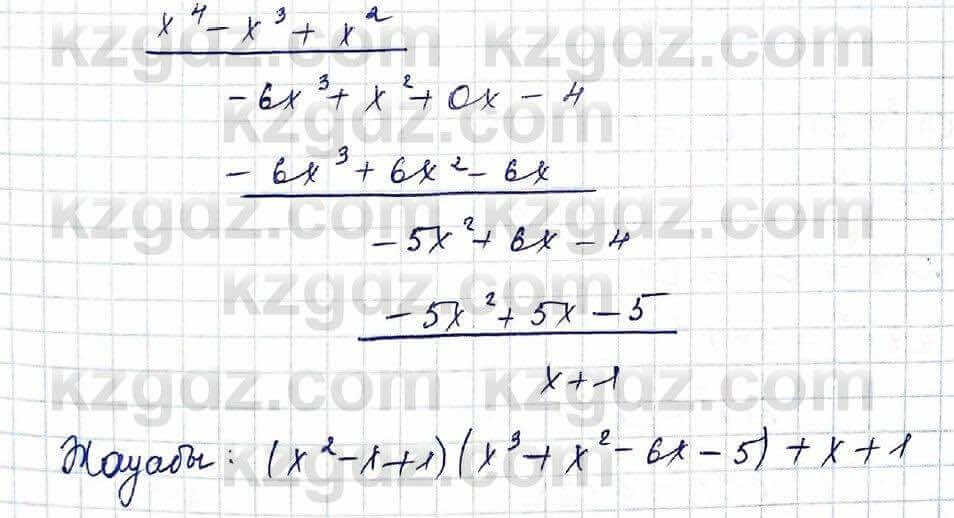 x⁴ - x³ + x²
- 6x³ + x² + 0x - 4
- 6x³ + 6x² - 6x
- 5x² + 6x - 4
- 5x² + 5x - 5
x + 1
Жауабы: (x² - x + 1)(x³ + x² - 6x - 5) + x + 1
kzgdz.com
kzgdz.com
kzgdz.com
kzgdz.com
kzgdz.com
kzgdz.com
kzgdz.com
kzgdz.com
kzgdz.com
kzgdz.com